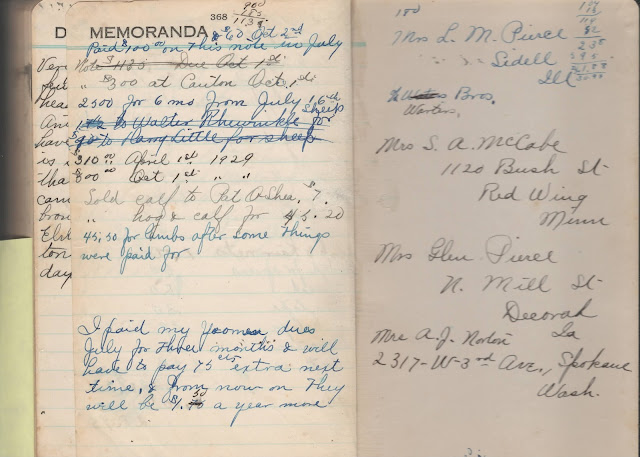 368
900
1135
D
MEMORANDA
& $60 Oct 2nd
Paid $100 00 on this note in July
Note $1135 Due Oct 1st
" $300 at Canton Oct 1st
2500 for 6 mo from July 16th
to Walter for sheep
90 to Harry Little for sheep
$310 00 April 1st 1929
$800 00 Oct 1st " "
Sold calf to Pat O'Shea, $7.
" hog & calf for 45.20
45.50 for lambs after some things
were paid for
I paid my dues
July for three months & will
have to pay 75 cts extra next
time, & from now on they
will be $1.50 a year more
Ver
hea
have
is
tha
cam
bron
ton
day
100
Mrs L. M. Pierce
" " Sidell
Ill
Bros.
Warters,
Mrs S. A. McCabe
1120 Bush St
Red Wing
Minn
Mrs Glen Pierce
N. Mill St
Decorah
Ia
Mrs A. J. Norton
2317-W-3rd Ave., Spokane
Wash.